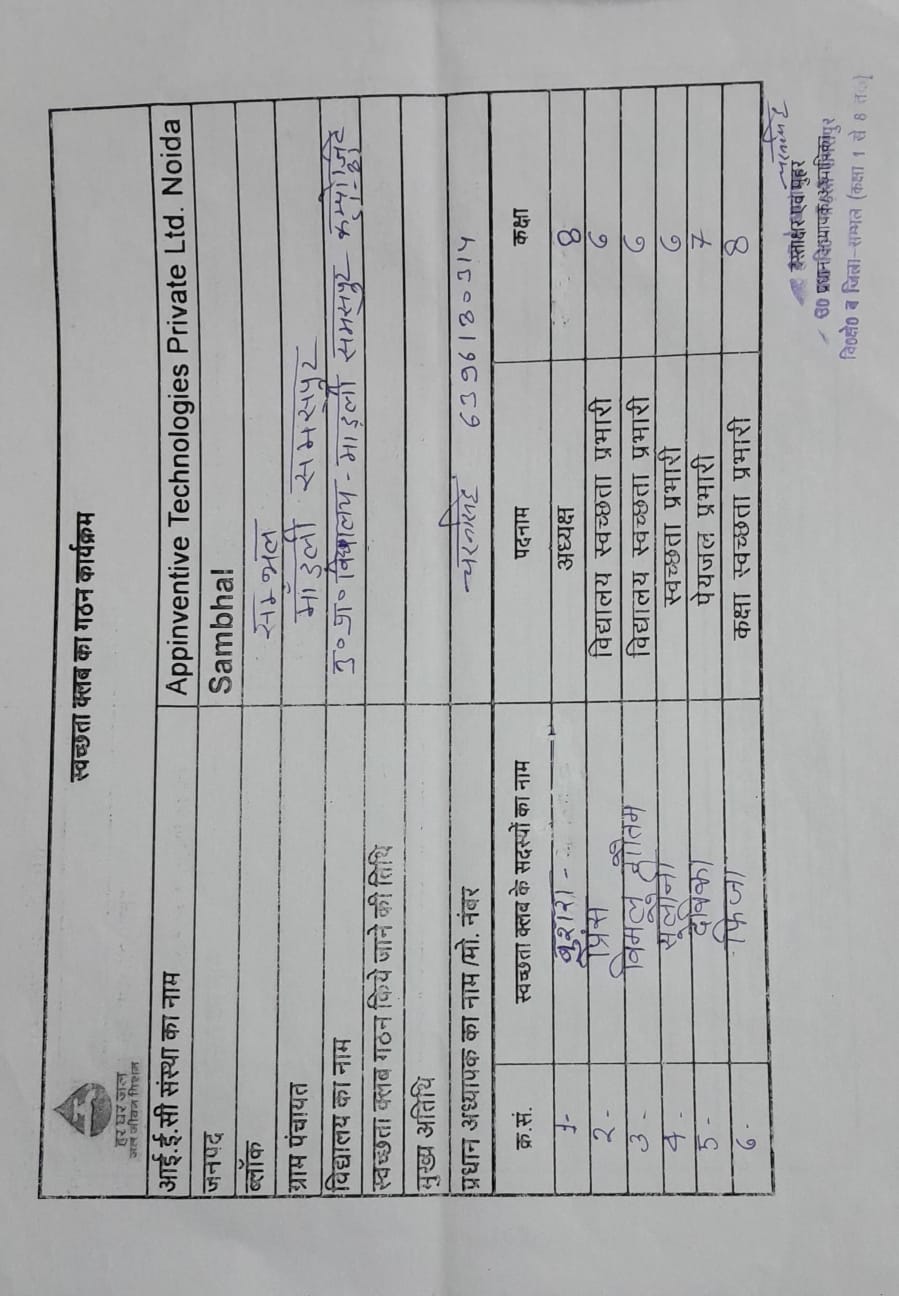 स्वच्छता क्लब का गठन कार्यक्रम
हर घर जल
जल जीवन मिशन
आई.ई.सी संस्था का नाम Appinventive Technologies Private Ltd. Noida
जनपद Sambhal
ब्लॉक सम्भल
ग्राम पंचायत माँडली समसपुर
विद्यालय का नाम उ०प्रा० विद्यालय - माडली समसपुर
स्वच्छता क्लब गठन किये जाने की तिथि
मुख्य अतिथि
प्रधान अध्यापक का नाम /मो. नंबर चरनसिंह 6396130314
क्र.सं. स्वच्छता क्लब के सदस्यों का नाम पदनाम कक्षा
1- बुशरा - अध्यक्ष 8
2- प्रिंस विद्यालय स्वच्छता प्रभारी 6
3- विमल गौतम विद्यालय स्वच्छता प्रभारी 6
4- स्वच्छता प्रभारी 6
5- पेयजल प्रभारी 7
6- फिजा कक्षा स्वच्छता प्रभारी 8
चरनसिंह
हस्ताक्षर एवं मुहर
वि०क्षे० व जिला-सम्भल (कक्षा 1 से 8 तक)